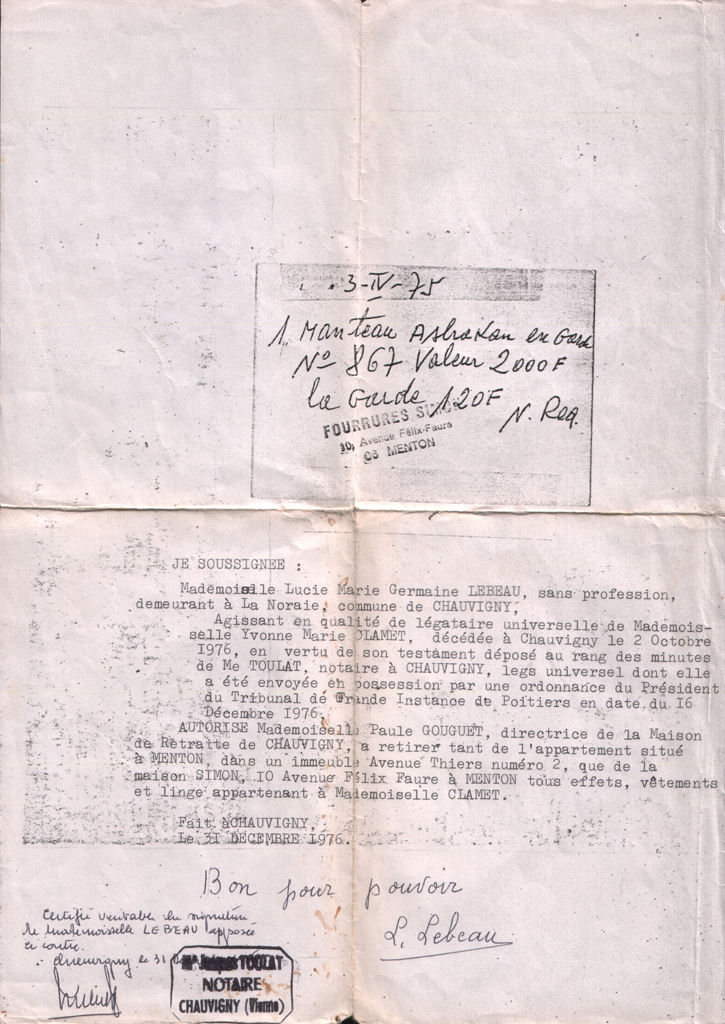 3-IV-75
1 Manteau Astrakan en Garde
N° 867 Valeur 2000F
la Garde 120F
N. Reg.
FOURRURES SIMON
10, Avenue Félix-Faure
06 MENTON
JE SOUSSIGNEE :
Mademoiselle Lucie Marie Germaine LEBEAU, sans profession,
demeurant à La Noraie, commune de CHAUVIGNY,
Agissant en qualité de légataire universelle de Mademois-
selle Yvonne Marie CLAMET, décédée à Chauvigny le 2 Octobre
I976, en vertu de son testament déposé au rang des minutes
de Me TOULAT, notaire à CHAUVIGNY, legs universel dont elle
a été envoyée en possession par une ordonnance du Président
du Tribunal de Grande Instance de Poitiers en date du I6
Décembre I976.
AUTORISE Mademoiselle Paule GOUGUET, directrice de la Maison
de Retraite de CHAUVIGNY, a retirer tant de l'appartement situé
à MENTON, dans un immeuble Avenue Thiers numéro 2, que de la
maison SIMON, IO Avenue Félix Faure à MENTON tous effets, vêtements
et linge appartenant à Mademoiselle CLAMET.
Fait àCHAUVIGNY,
Le 3I DECEMBRE I976.
Bon pour pouvoir
L. Lebeau
Certifié véritable la signature
de Mademoiselle LEBEAU apposée
ci contre.
Chauvigny le 31
Me Jacques TOULAT
NOTAIRE
CHAUVIGNY (Vienne)